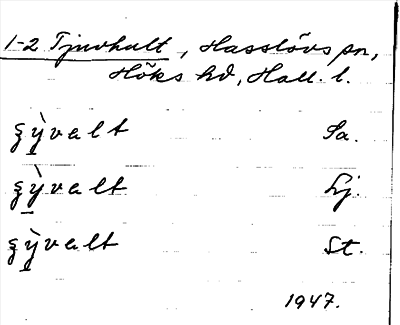 1-2 Tjuvhult, Hasslövs sn,
Höks hd, Hall. l.
ʒỳvalt Sa.
ʒỳvalt Lj.
ʒỳvalt St.
1947.